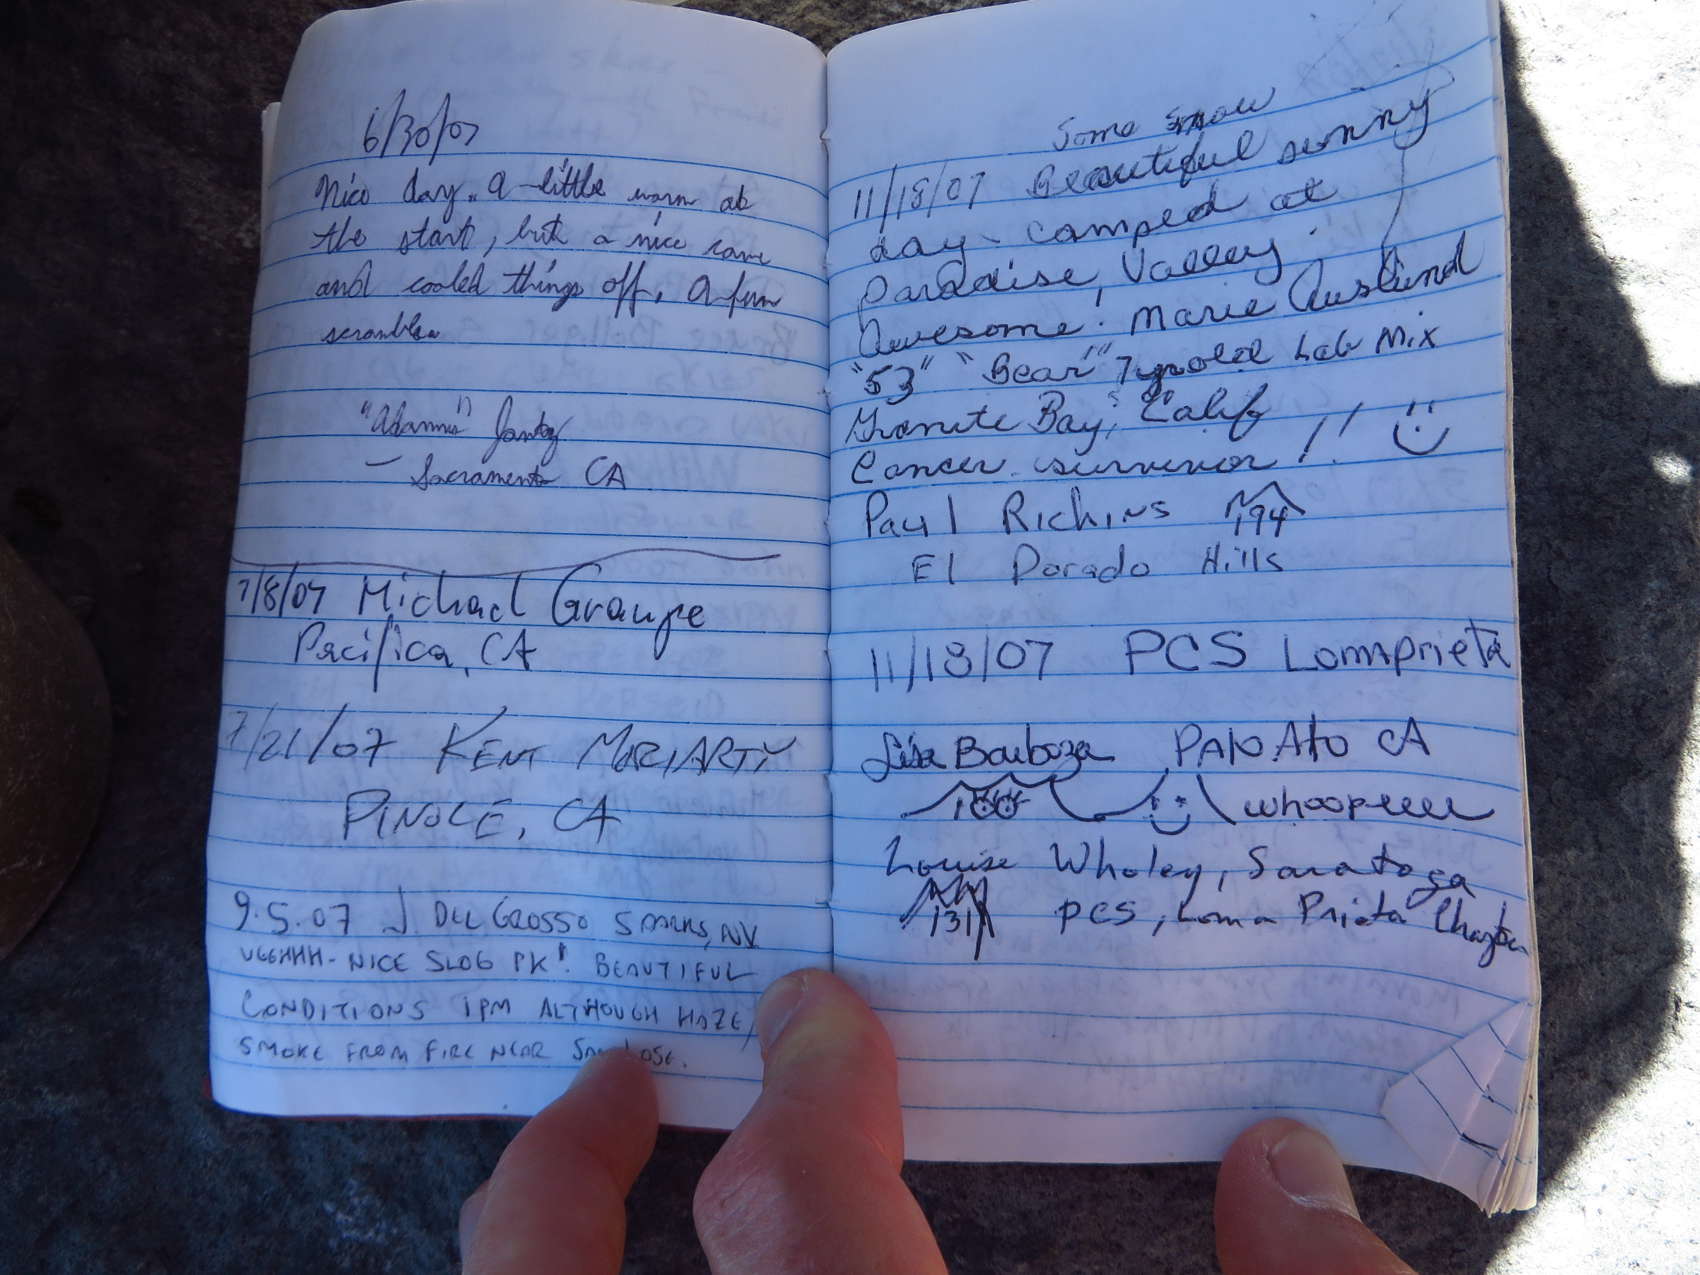 6/30/07
Nice day. A little warm at
the start, but a nice
and cooled things off. A fun
scramble
Sacramento CA
7/8/07 Michael Graupe
Pacifica, CA
7/21/07 KENT MORIARTY
PINOLE, CA
9.5.07 J DEL GROSSO SPARKS, NV
UGGHHH - NICE SLOG PK! BEAUTIFUL
CONDITIONS 1PM ALTHOUGH HAZE/
SMOKE FROM FIRE NEAR SAN JOSE.
Some snow
11/18/07 Beautiful sunny
day - camped at
Paradise Valley.
Awesome. Marie
"53" "Bear" 7 yr old Lab Mix
Granite Bay, Calif
Cancer survivor!!
Paul Richins 194
El Dorado Hills
11/18/07 PCS Lomaprieta
Lisa Barboza PAlo Alto CA
100 whoopeeee
Louise Wholey, Saratoga
131 PCS, Loma Prieta Chapter